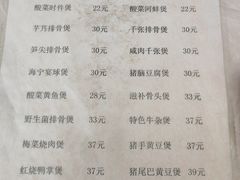 酸菜时件煲 22元 酸菜河鲜煲 22元
芋艿排骨煲 30元 千张排骨煲 30元
笋尖排骨煲 30元 咸肉千张煲 30元
海宁宴球煲 30元 猪脑豆腐煲 30元
酸菜黄鱼煲 28元 滋补骨头煲 33元
野生菌排骨煲 33元 特色牛杂煲 37元
梅菜烧肉煲 37元 猪手黄豆煲 37元
红烧鸭掌煲 37元 猪尾巴黄豆煲 39元